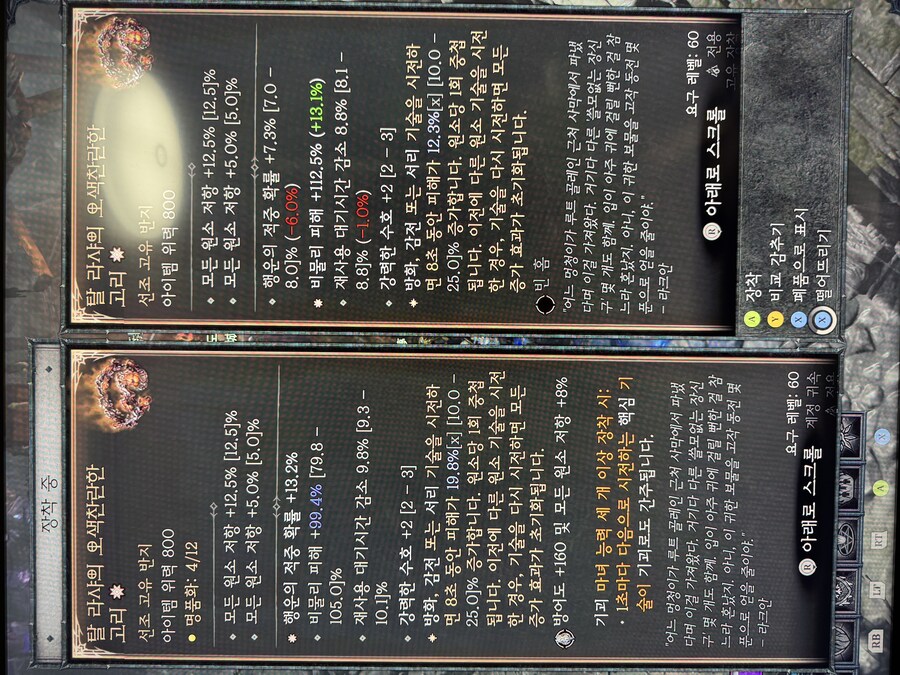 장착 중
탈 라샤의 오색찬란한
고리
선조 고유 반지
아이템 위력 800
명품화: 4/12
모든 원소 저항 +12.5% [12.5]%
모든 원소 저항 +5.0% [5.0]%
행운의 적중 확률 +13.2%
비물리 피해 +99.4% [79.8 –
105.0]%
재사용 대기시간 감소 9.8% [9.3 –
10.1]%
강력한 수호 +2 [2 – 3]
방화, 감전 또는 서리 기술을 시전하
면 8초 동안 피해가 19.8%[x] [10.0 –
25.0]% 증가합니다. 원소당 1회 중첩
됩니다. 이전에 다른 원소 기술을 시전
한 경우, 기술을 다시 시전하면 모든
증가 효과가 초기화됩니다.
방어도 +160 및 모든 원소 저항 +8%
기괴 마녀 능력 세 개 이상 장착 시:
• 1초마다 다음으로 시전하는 핵심 기
술이 기괴로도 간주됩니다.
"어느 멍청이가 루트 골레인 근처 사막에서 파냈
다며 이걸 가져왔다. 거기다 다른 쓸모없는 장신
구 몇 개도 함께. 입이 아주 귀에 걸릴 뻔한 걸 참
느라 혼났지. 아니, 이 귀한 보물을 고작 동전 몇
푼으로 얻을 줄이야."
– 라크안
요구 레벨: 60
계정 귀속
전용
R 아래로 스크롤
탈 라샤의 오색찬란한
고리
선조 고유 반지
아이템 위력 800
모든 원소 저항 +12.5% [12.5]%
모든 원소 저항 +5.0% [5.0]%
행운의 적중 확률 +7.3% [7.0 –
8.0]% (-6.0%)
비물리 피해 +112.5% (+13.1%)
재사용 대기시간 감소 8.8% [8.1 –
8.8]% (-1.0%)
강력한 수호 +2 [2 – 3]
방화, 감전 또는 서리 기술을 시전하
면 8초 동안 피해가 12.3%[x] [10.0 –
25.0]% 증가합니다. 원소당 1회 중첩
됩니다. 이전에 다른 원소 기술을 시전
한 경우, 기술을 다시 시전하면 모든
증가 효과가 초기화됩니다.
빈 홈
"어느 멍청이가 루트 골레인 근처 사막에서 파냈
다며 이걸 가져왔다. 거기다 다른 쓸모없는 장신
구 몇 개도 함께. 입이 아주 귀에 걸릴 뻔한 걸 참
느라 혼났지. 아니, 이 귀한 보물을 고작 동전 몇
푼으로 얻을 줄이야."
– 라크안
요구 레벨: 60
전용
고유 장착
R 아래로 스크롤
A 장착
Y 비교 감추기
X 폐품으로 표시
X 떨어뜨리기
RB
LT
RT
A
X